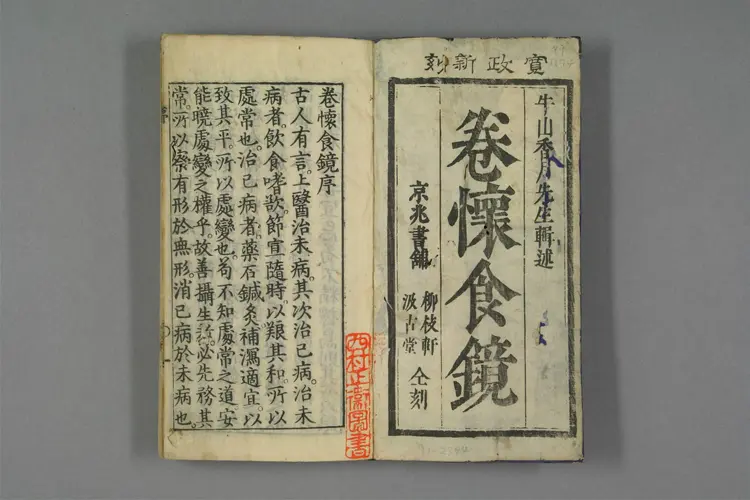 寛政新刻
牛山香月先生輯述
卷懷食鏡
京兆書舗
柳枝軒
汲古堂
仝刻
卷懷食鏡序
古人有言。上醫治未病。其次治已病。治未
病者。飲食嗜欲。節宣隨時。以艱其和。所以
處常也。治已病者。藥石鍼灸。補瀉適宜。以
致其平。所以處變也。苟不知處常之道。安
能曉處變之權乎。故善攝生者。必先務其
常。所以察有形於無形。消已病於未病也。